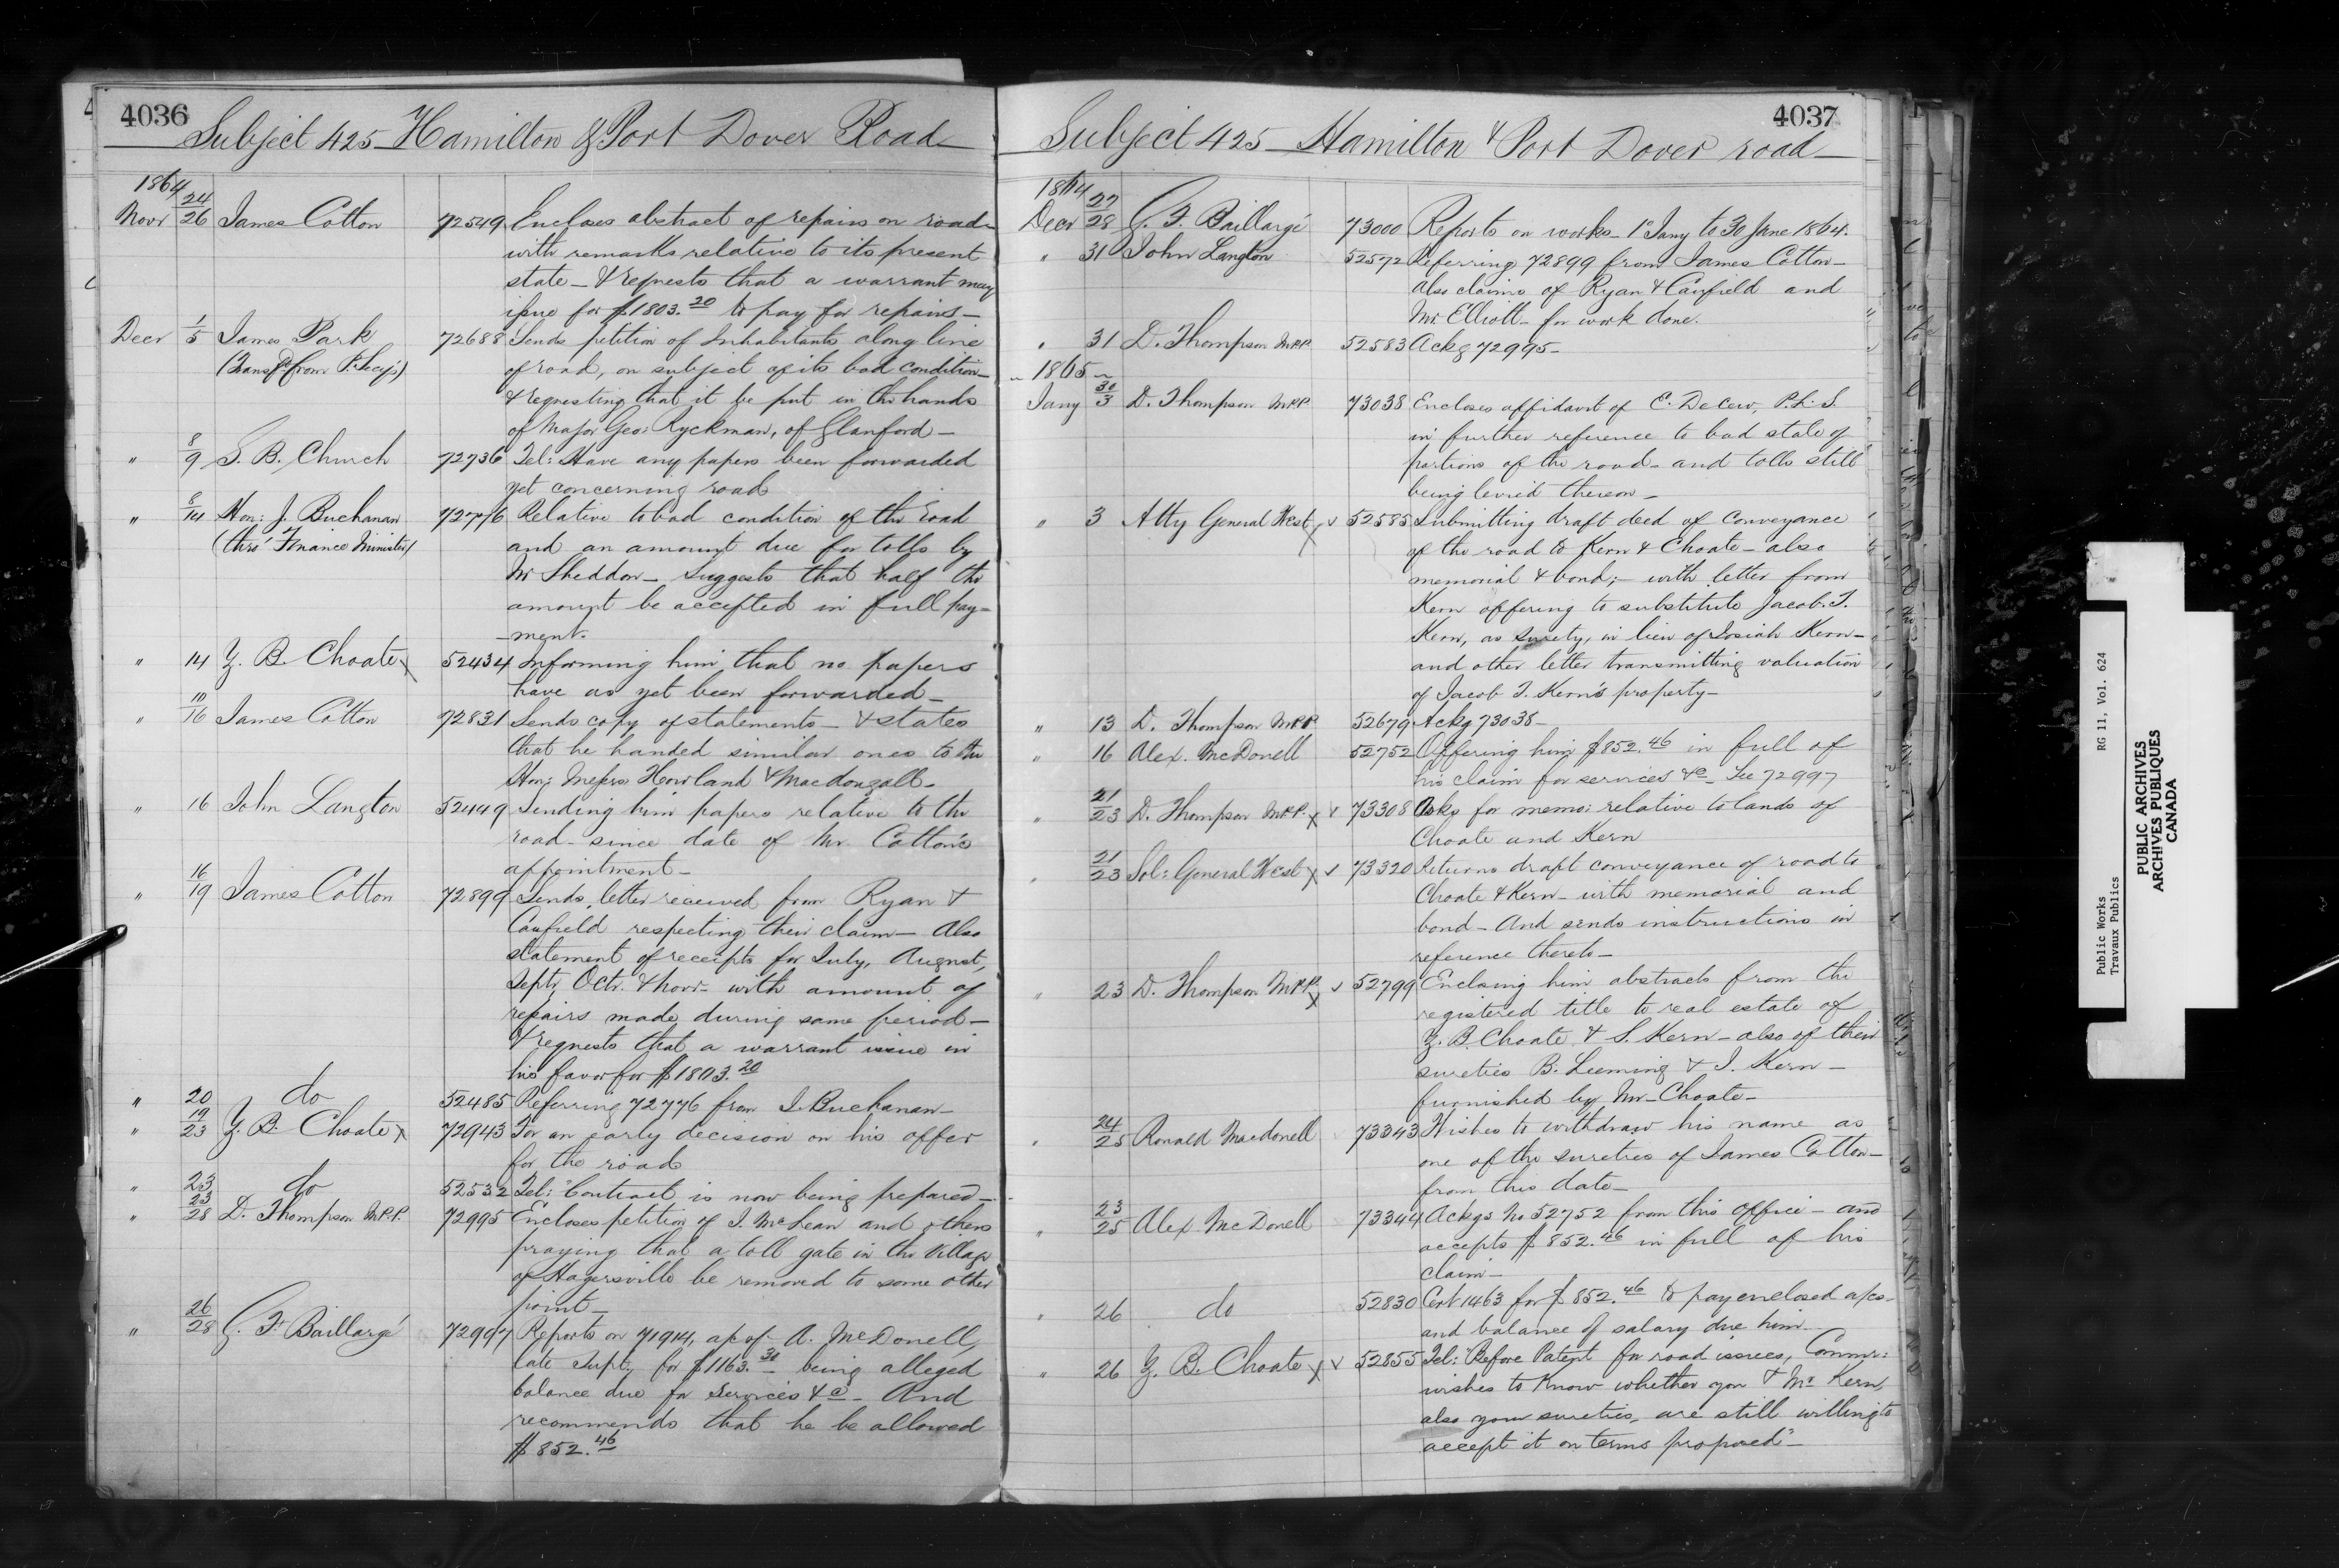 4036
Subject 425 Hamilton & Port Dover Road
1864
Novr 24/26 James Cotton 72549 Encloses abstract of repairs on road
with remarks relative to its present
state - & requests that a warrant may
issue for $1803.20 to pay for repairs -
Decr 1/5 James Park 72688 Sends petition of Inhabitants along line
(Transfd from P. Secy's) of road, on subject of its bad condition -
& requesting that it be put in the hands
of Major Geo: Ryckman, of Glanford -
" 8/9 S. B. Church 72736 Tel: Have any papers been forwarded
yet concerning road
" 8/14 Hon: J. Buchanan 72776 Relative to bad condition of the road
(thro' Finance Minister) and an amount due for tolls by
Mr Sheddon - Suggests that half the
amount be accepted in full pay-
-ment.
" 14 Z. B. Choate x 52434 Informing him that no papers
have as yet been forwarded -
" 10/16 James Cotton 72831 Sends copy of statements - & states
that he handed similar ones to the
Hon: Messrs Howland & Macdougall -
" 16 John Langton 52449 Sending him papers relative to the
road - since date of Mr Cotton's
appointment -
" 16/19 James Cotton 72899 Sends letter received from Ryan &
Caufield respecting their claim - Also
statement of receipts for July, August,
Septr, Octr. & Novr - with amount of
repairs made during same period -
& requests that a warrant issue in
his favor for $1803.20
" 20 do 52485 Referring 72776 from I. Buchanan -
" 19/23 Z. B. Choate x 72943 For an early decision on his offer
for the road
" 23 do 52532 Tel: "Contract is now being prepared -
" 23/28 D. Thompson M.P.P. 72995 Encloses petition of J. McLean and others
praying that a toll gate in the Village
of Hagersville be removed to some other
point -
" 26/28 G. F. Baillargé 72997 Reports on 71914, ap of A. McDonell,
late Supt, for $1163.30 - being alleged
balance due for services &c - And
recommends that he be allowed
$852.46
4037
Subject 425 - Hamilton & Port Dover road -
1864
Decr 27/28 G. F. Baillargé 73000 Reports on works - 1st Jany to 30 June 1864.
" 31 John Langton 52572 Referring 72899 from James Cotton -
also claims of Ryan & Caufield and
Mr. Elliott - for work done.
" 31 D. Thompson M.P.P. 52583 Ackg 72995 -
- 1865 -
Jany 30/3 D. Thompson M.P.P. 73038 Encloses affidavit of E. DeCew, P.L.S.
in further reference to bad state of
portions of the road - and tolls still
being levied thereon -
" 3 Atty General West x v 52585 Submitting draft deed of conveyance
of the road to Kern & Choate - also
memorial & bond; - with letter from
Kern offering to substitute Jacob. T.
Kern, as surety, in lieu of Josiah Kern -
and other letter transmitting valuation
of Jacob T. Kern's property -
" 13 D. Thompson M.P.P. 52679 Ackg 73038 -
" 16 Alex. McDonell 52752 Offering him $852.46 in full of
his claim for services &c - See 72997
" 21/23 D. Thompson M.P.P. x v 73308 Asks for memo: relative to lands of
Choate and Kern
" 21/23 Sol: General West x v 73320 Returns draft conveyance of road to
Choate & Kern - with memorial and
bond - And sends instructions in
reference thereto -
" 23 D. Thompson M.P.P. x v 52799 Enclosing him abstracts from the
registered title to real estate of
Z. B. Choate & S. Kern - also of their
sureties B. Leeming & I. Kern -
furnished by Mr - Choate -
" 24/25 Ronald Macdonell 73343 Wishes to withdraw his name as
one of the sureties of James Cotton -
from this date -
" 23/25 Alex McDonell 73344 Ackgs No 52752 from this office - and
accepts $852.46 in full of his
claim -
" 26 do 52830 Cert 1463 for $852.46 to pay enclosed a/cs -
and balance of salary due him -
" 26 Z. B. Choate x v 52855 Tel: "Before Patent for road issues, Commr:
wishes to know whether you & Mr Kern,
also your sureties, are still willing to
accept it on terms proposed" -
Public Works RG 11, Vol. 624
Travaux Publics
PUBLIC ARCHIVES
ARCHIVES PUBLIQUES
CANADA